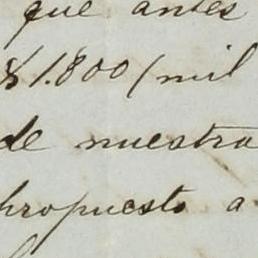 que antes
$1.800/mil
de nuestra
propuesto a